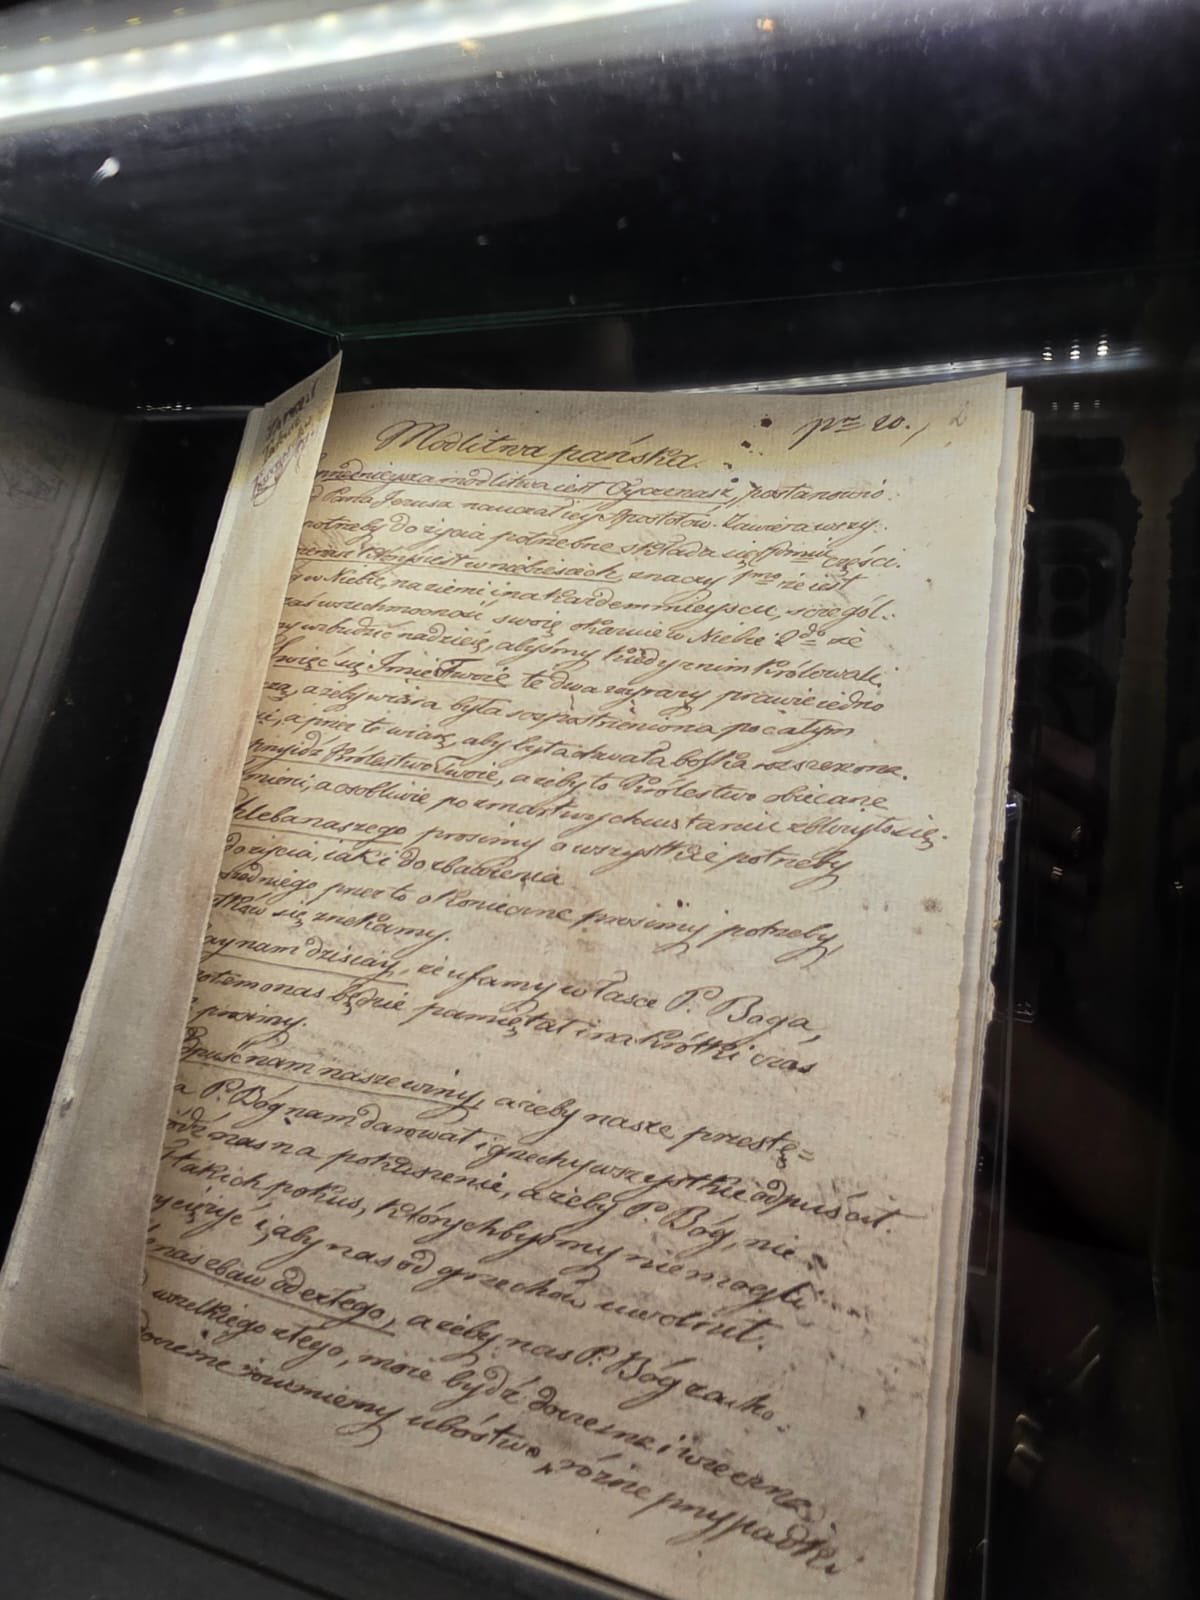 Modlitwa pańska.
pro 20., 2
modlitwa iest Oyczenasz, postanowio
Pana Jezusa nauczał icy Apostołow. Zawiera wszy:
potrzeby do życia potrzebne składa się części.
Któryś iest w niebiesiech, znaczy 1mo że iest
w Niebie, na ziemi i na każdem mieyscu, szczegól:
wszechmocność swoię okazuie w Niebie 2do że
wzbudzić nadzieię, abyśmy kiedyś z nim królowali.
Święć się Imie Twoie te dwa wyrazy prawie iedno
a żeby wiara była rozprzestrzeniona po całym
a przez te wiarę, aby była chwała boska rozszerzona.
przyidź Królestwo Twoie, a żeby to Królestwo obiecane
a osobliwie po zmartwychwstaniu zbliżyło się.
Chleba naszego prosimy o wszystkie potrzeby
do życia, iak i do zbawienia
przez to o konieczne prosimy potrzeby,
się zrzekamy.
nam dzisiay, że ufamy w łasce P. Boga,
potem o nas będzie pamiętał i na krótki czas
prosimy.
Odpuść nam nasze winy, a żeby nasze przestę=
a P. Bóg nam darował i grzechy wszystkie odpuścił.
nas na pokuszenie, a żeby P. Bóg, nie
takich pokus, którychbyśmy nie mogli
i aby nas od grzechów uwolnił.
nas zbaw ode złego, a żeby nas P. Bóg zacho:
wszelkiego złego, może bydź doczesne i wieczne.
doczesne rozumiemy ubóstwo, rożne przypadki